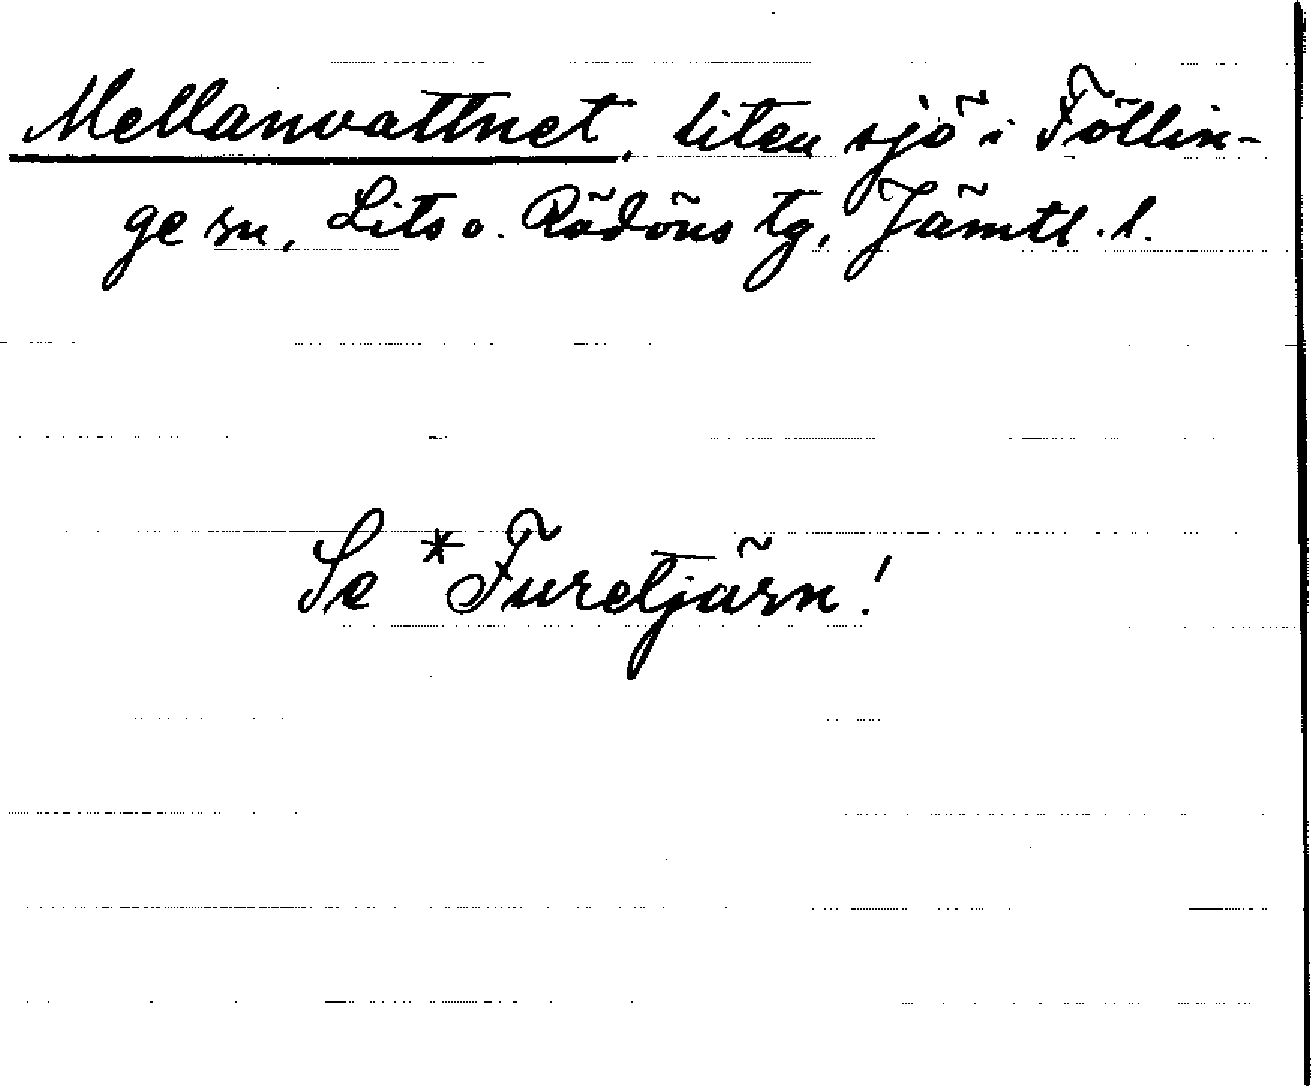 Mellanvattnet, liten sjö i Föllin-
ge sn, Lits o. Rödöns tg, Jämtl. l.
Se *Furetjärn!